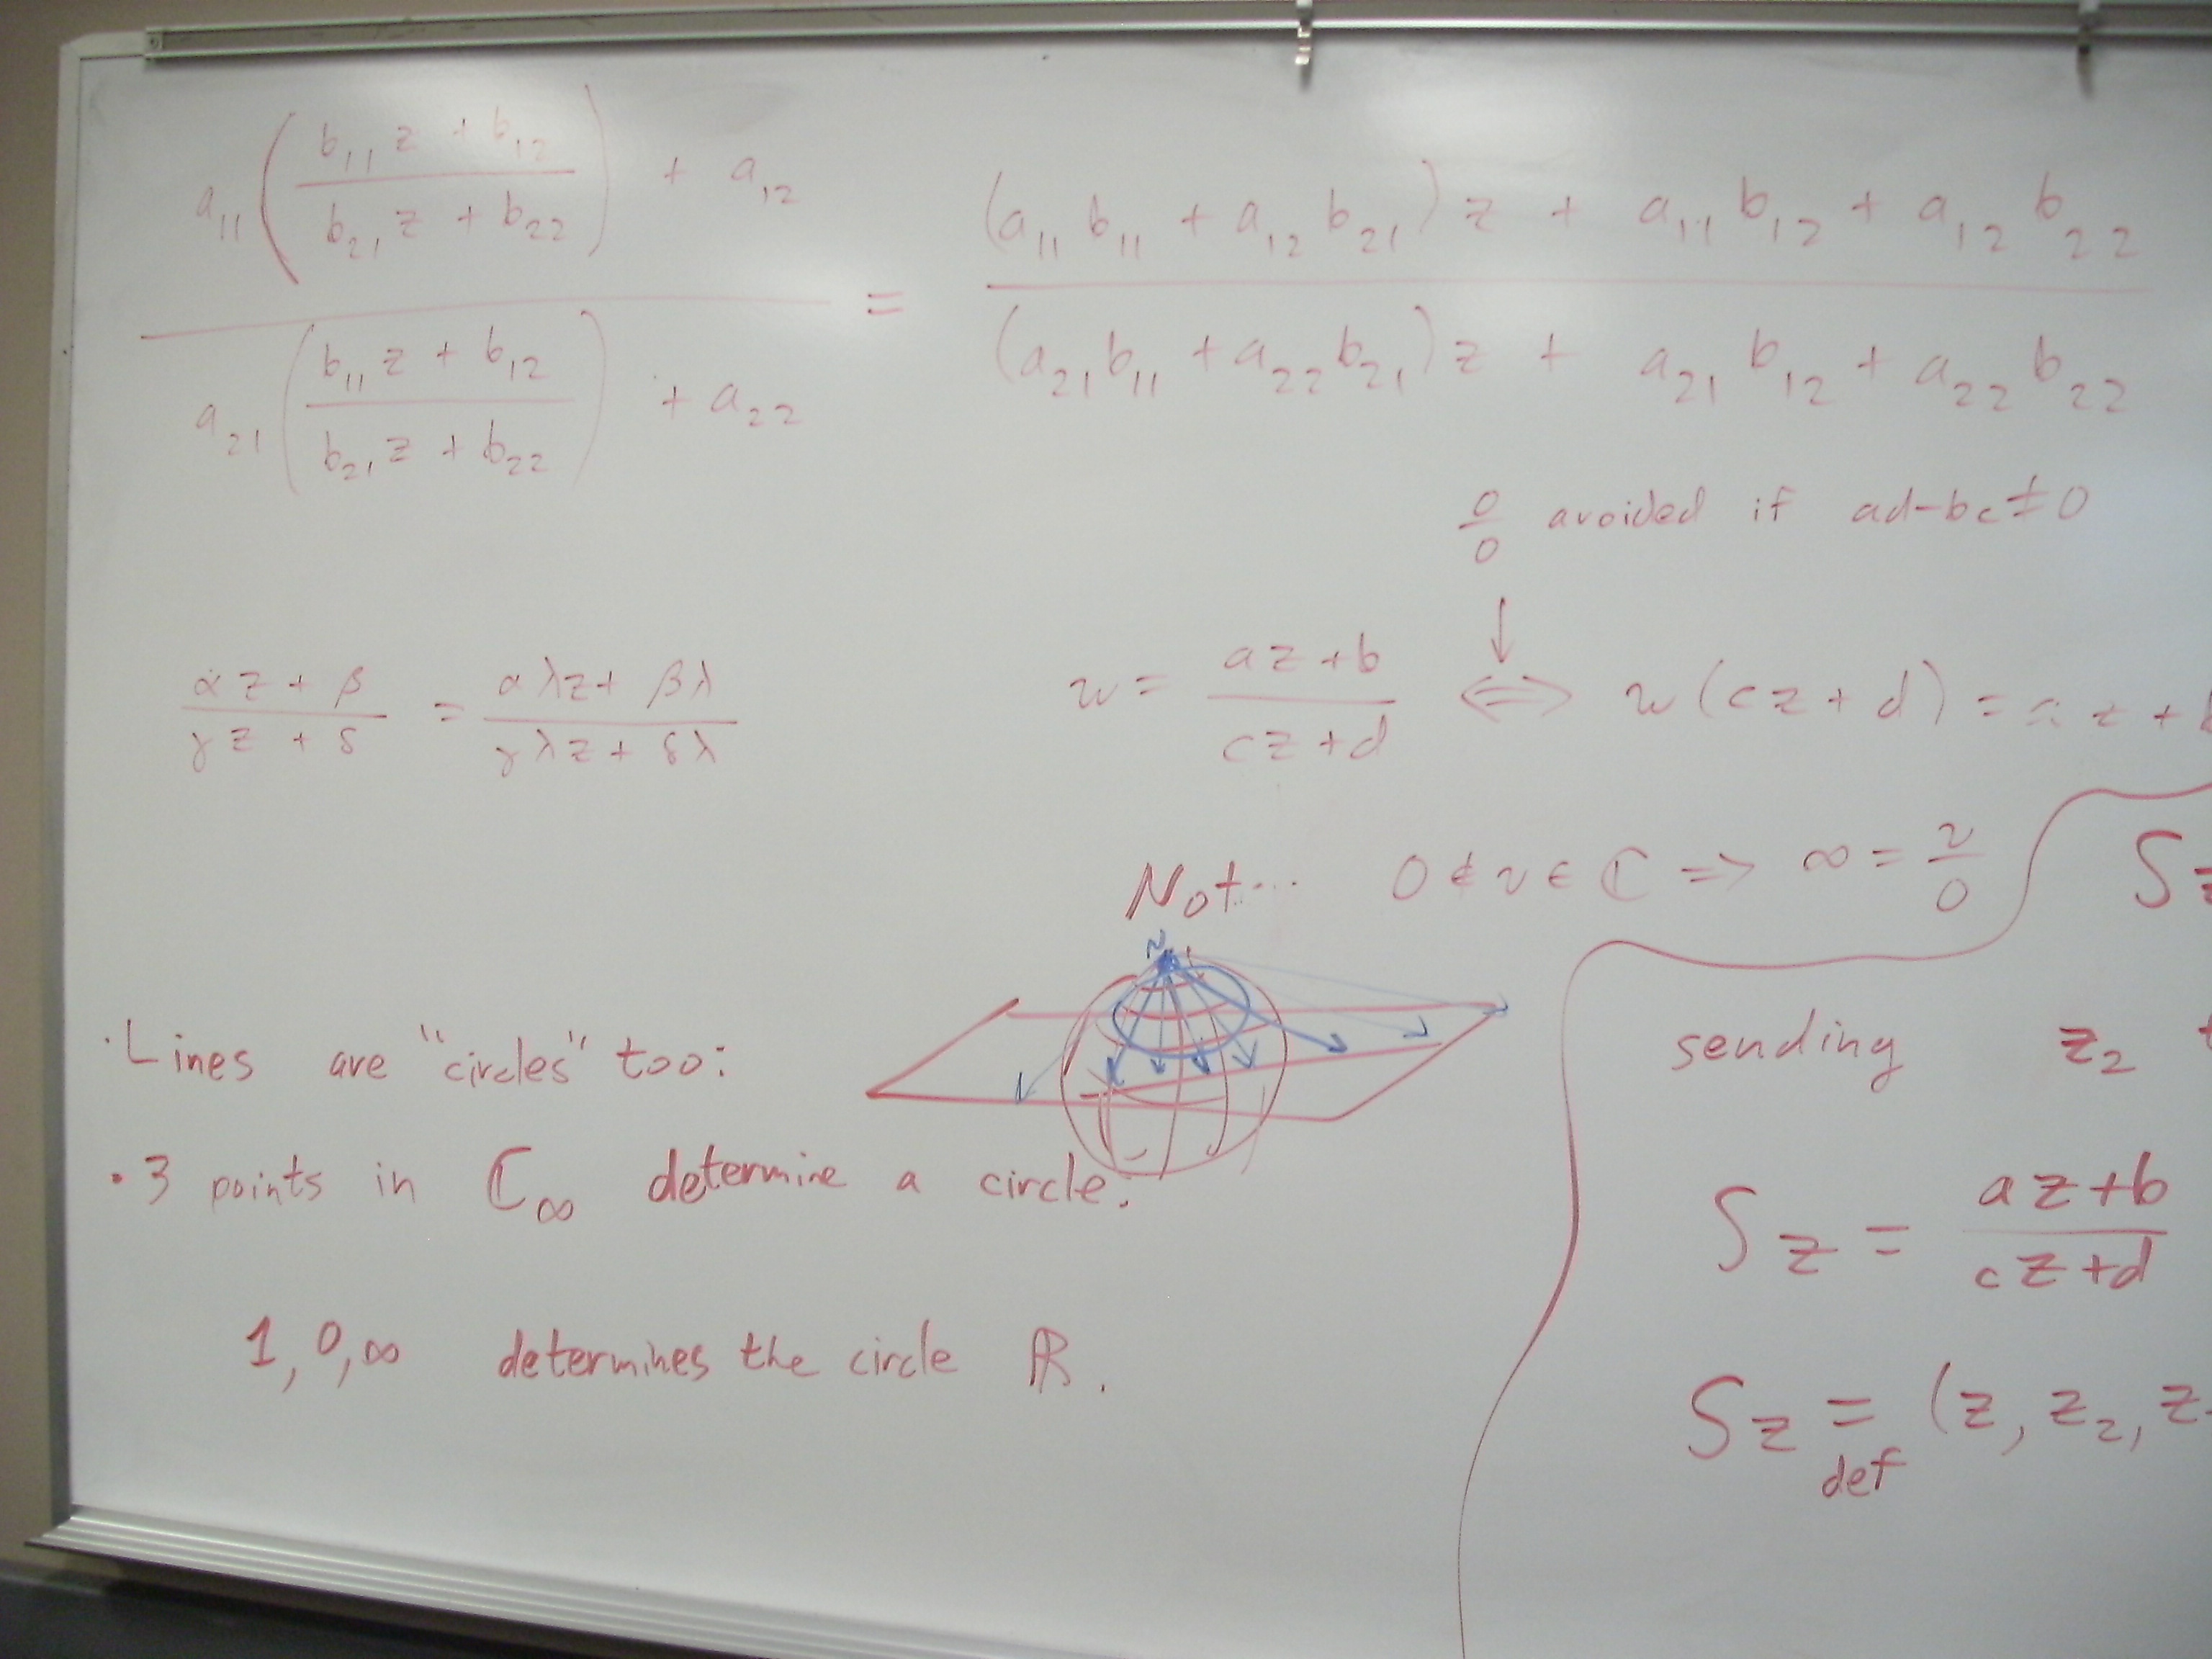 a₁₁((b₁₁z + b₁₂)/(b₂₁z + b₂₂)) + a₁₂
a₂₁((b₁₁z + b₁₂)/(b₂₁z + b₂₂)) + a₂₂
=
(a₁₁b₁₁ + a₁₂b₂₁)z + a₁₁b₁₂ + a₁₂b₂₂
(a₂₁b₁₁ + a₂₂b₂₁)z + a₂₁b₁₂ + a₂₂b₂₂
0/0 avoided if ad-bc≠0
↓
(αz + β)/(γz + δ) = (αλz + βλ)/(γλz + δλ)
w = (az+b)/(cz+d) ⇔ w(cz+d) = az+b
Not... 0 ≠ v ∈ ℂ ⇒ ∞ = v/0
Sz
N
· Lines are "circles" too:
· 3 points in ℂ∞ determine a circle.
1, 0, ∞ determines the circle ℝ.
sending z₂
Sz = (az+b)/(cz+d)
Sz = (z, z₂, z
def